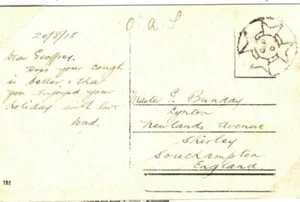 O A S
20/8/18
Dear Geoffrey,
Hope your cough
is better, & that
you enjoyed your
holiday with love
Dad.
Master G Bunday
Lynton
Newlands Avenue
Shirley
Southampton
England
192